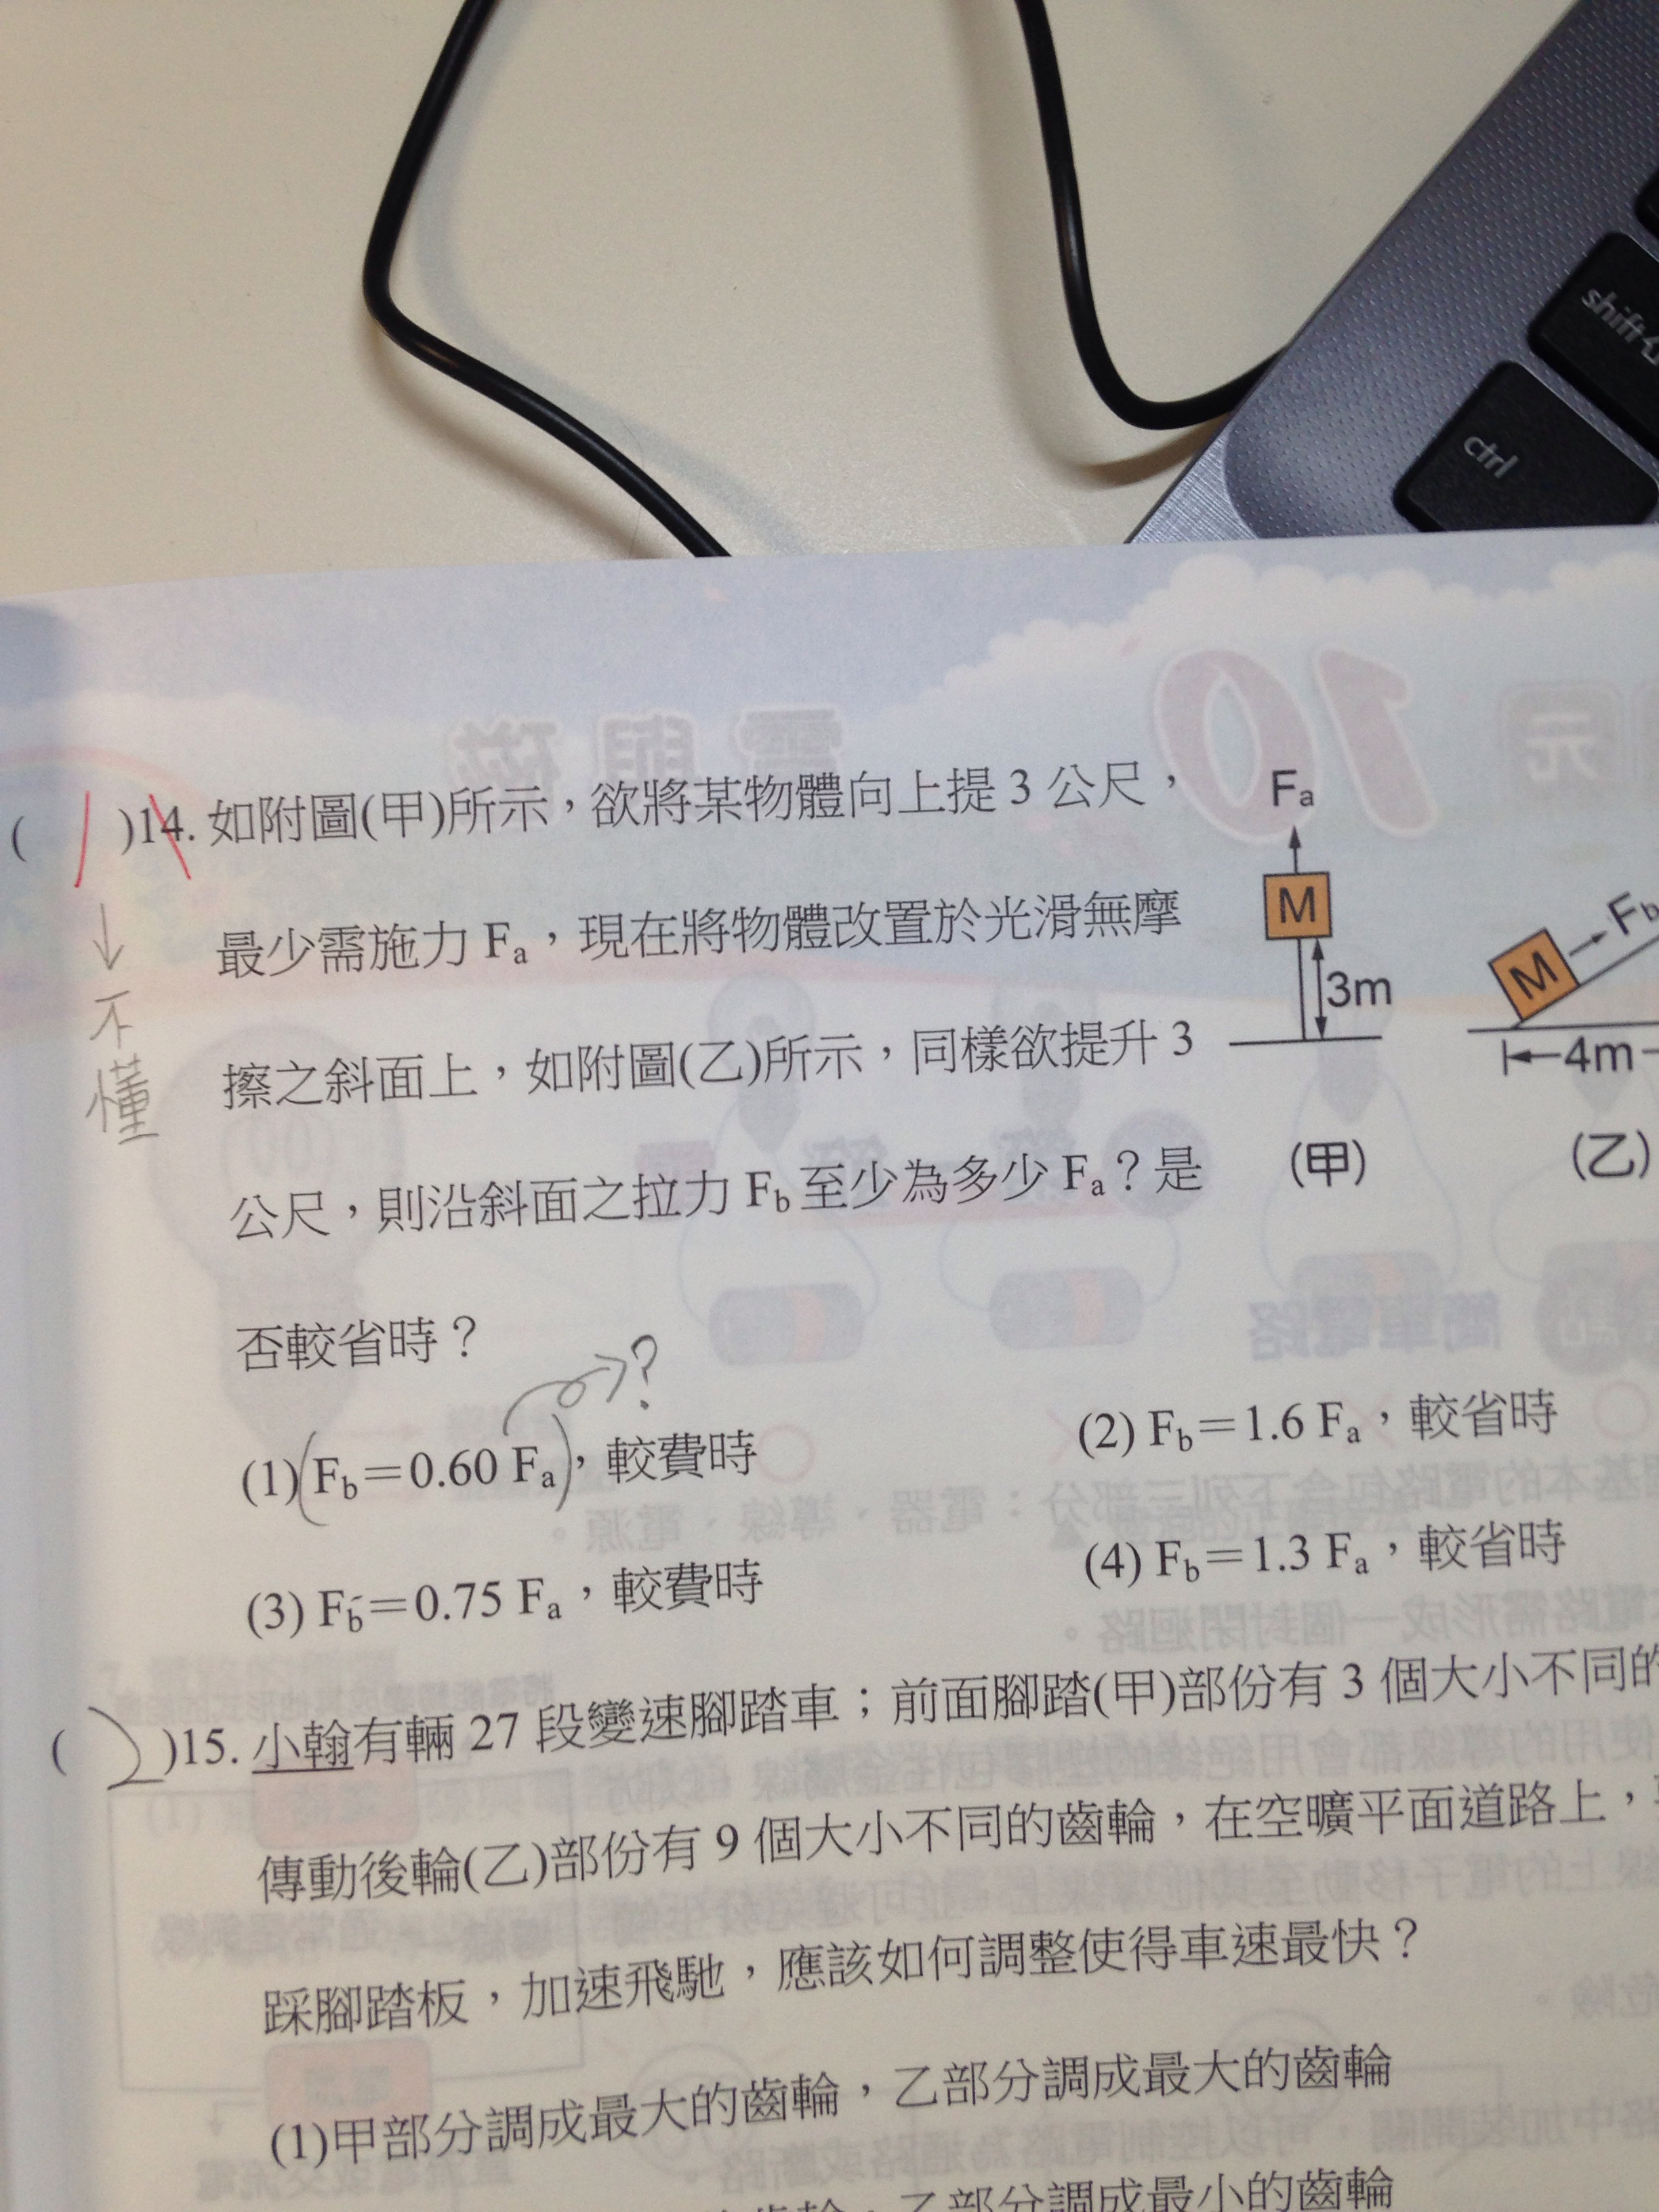 shift
ctrl
( 1 )14. 如附圖(甲)所示，欲將某物體向上提 3 公尺，
最少需施力 Fa，現在將物體改置於光滑無摩
擦之斜面上，如附圖(乙)所示，同樣欲提升 3
公尺，則沿斜面之拉力 Fb 至少為多少 Fa？是
否較省時？
↓不懂
Fa
M
3m
(甲)
Fb
M
4m
(乙)
?
(1)(Fb＝0.60 Fa)，較費時
(2) Fb＝1.6 Fa，較省時
(3) Fb＝0.75 Fa，較費時
(4) Fb＝1.3 Fa，較省時
( 2 )15. 小翰有輛 27 段變速腳踏車；前面腳踏(甲)部份有 3 個大小不同的
傳動後輪(乙)部份有 9 個大小不同的齒輪，在空曠平面道路上，
踩腳踏板，加速飛馳，應該如何調整使得車速最快？
(1)甲部分調成最大的齒輪，乙部分調成最大的齒輪
乙部分調成最小的齒輪